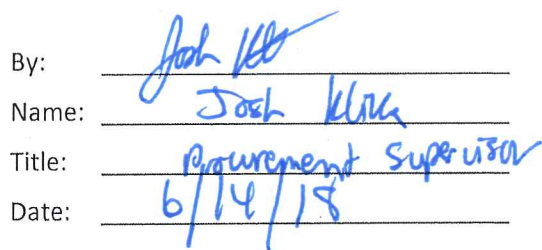 By: Josh
Name: Josh
Title: Procurement Supervisor
Date: 6/14/18